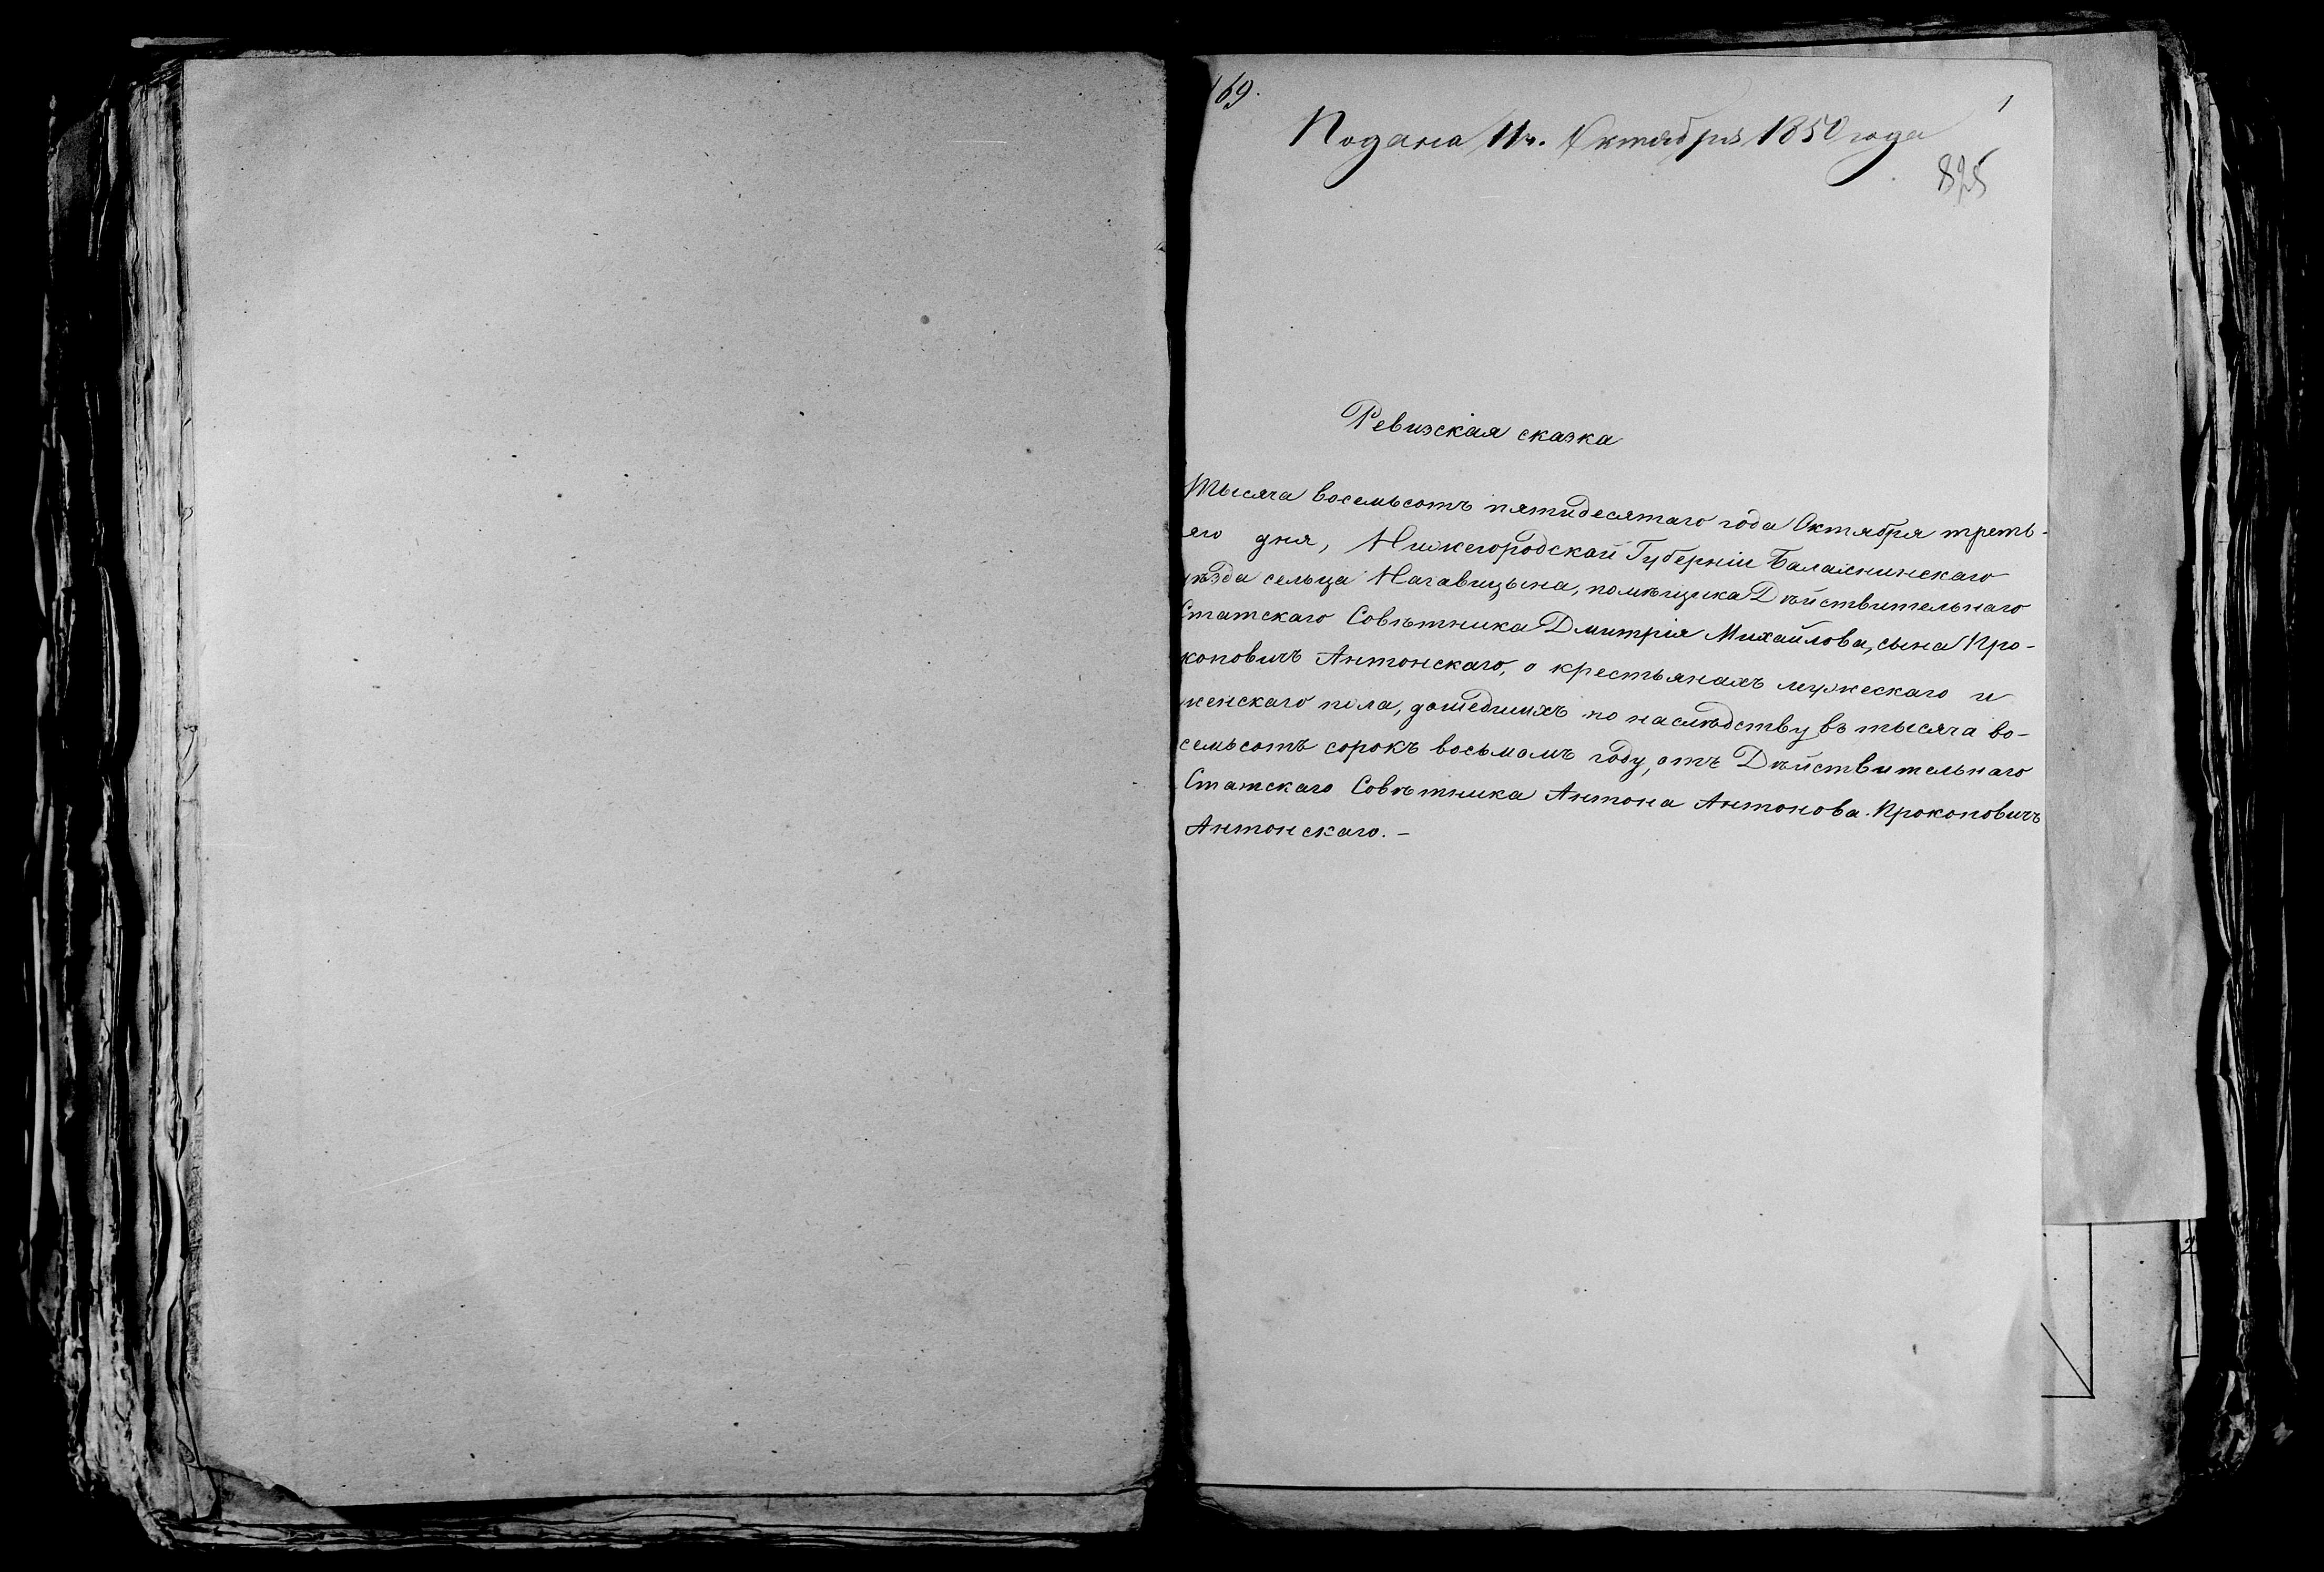 169.
1
Подана 11го. Октября 1850 года
825
Ревизская сказка
Тысяча восемьсотъ пятидесятаго года Октября треть-
яго дня, Нижегородской Губерніи Балахнинскаго
уѣзда сельца Нагавицына, помѣщика Дѣйствительнаго
Статскаго Совѣтника Дмитрія Михайлова, сына Про-
коповичъ Антонскаго, о крестьянахъ мужескаго и
женскаго пола, дошедшихъ по наслѣдству въ тысяча во-
семьсотъ сорокъ восьмомъ году, отъ Дѣйствительнаго
Статскаго Совѣтника Антона Антонова. Прокоповичъ
Антонскаго. –
2